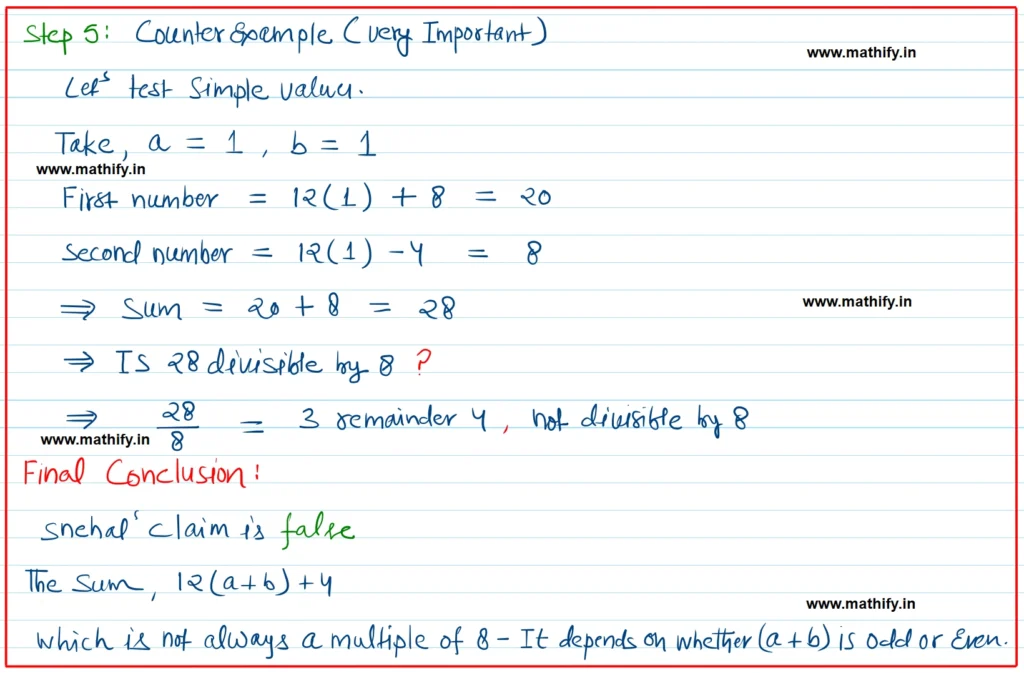 Step 5: Counter Example (Very Important)
www.mathify.in
Let's test simple values.
Take, a = 1, b = 1
www.mathify.in
First number = 12(1) + 8 = 20
Second number = 12(1) - 4 = 8
⇒ Sum = 20 + 8 = 28
www.mathify.in
⇒ Is 28 divisible by 8 ?
⇒ 28/8 = 3 remainder 4, not divisible by 8
www.mathify.in
Final Conclusion:
Snehal's claim is false
The Sum, 12(a+b)+4
www.mathify.in
which is not always a multiple of 8 - It depends on whether (a+b) is odd or Even.